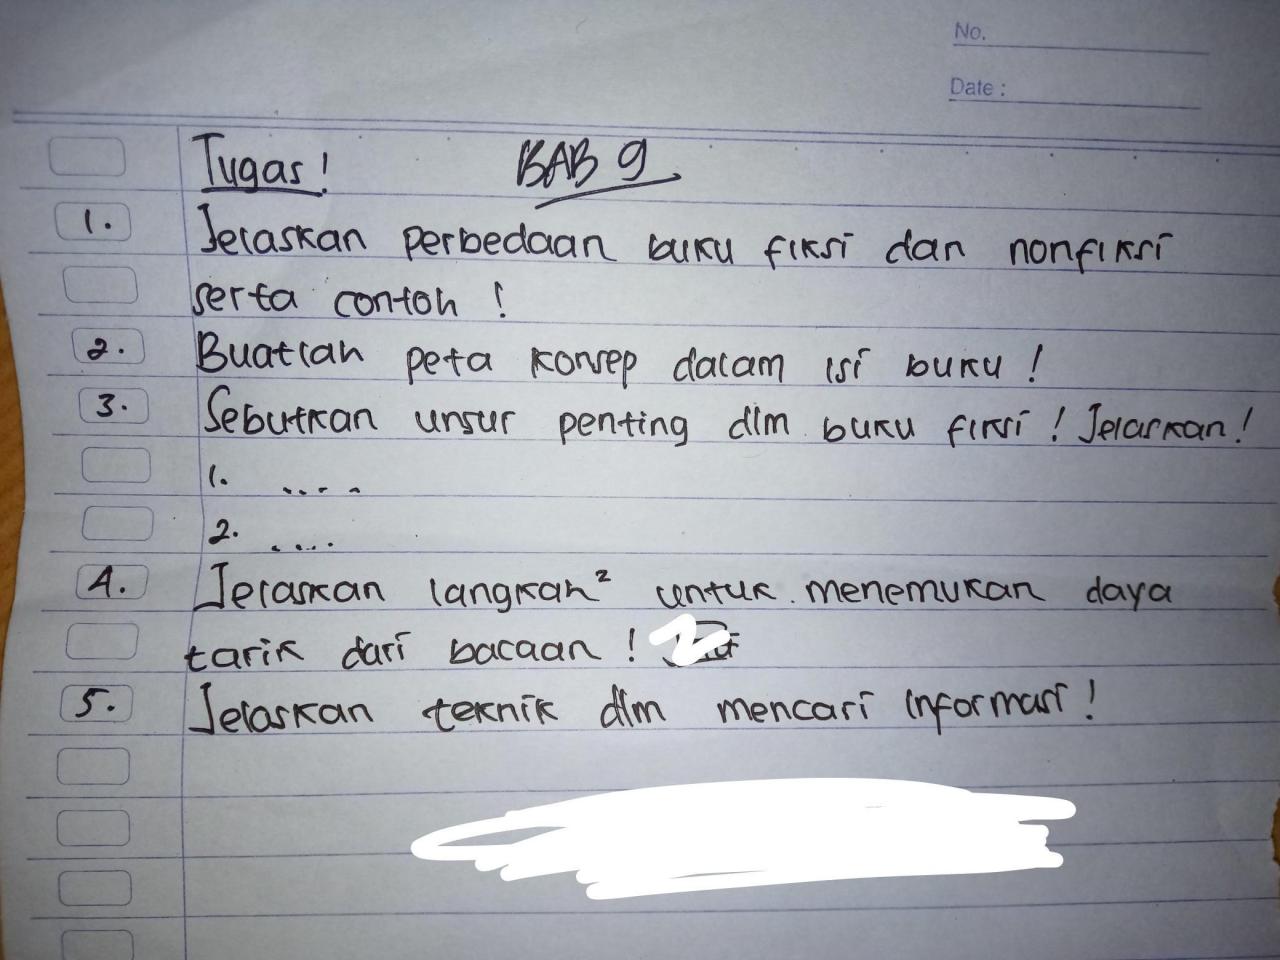 No.
Date :
Tugas! BAB 9
1. Jelaskan perbedaan buku fiksi dan nonfiksi
serta contoh !
2. Buatlah peta konsep dalam isi buku !
3. Sebutkan unsur penting dlm buku fiksi ! Jelaskan !
1. ....
2. ....
4. Jelaskan langkah² untuk menemukan daya
tarik dari bacaan !
5. Jelaskan teknik dlm mencari informasi !